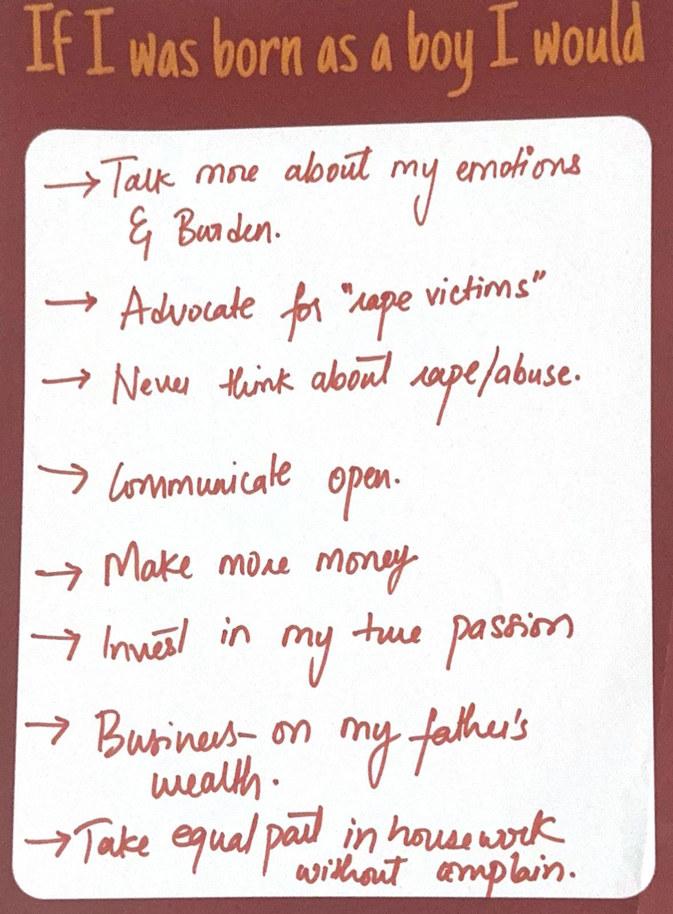 If I was born as a boy I would
→ Talk more about my emotions
& Burden.
→ Advocate for "rape victims"
→ Never think about rape/abuse.
→ Communicate open.
→ Make more money
→ Invest in my true passion
→ Business- on my father's
wealth.
→ Take equal part in housework
without complain.